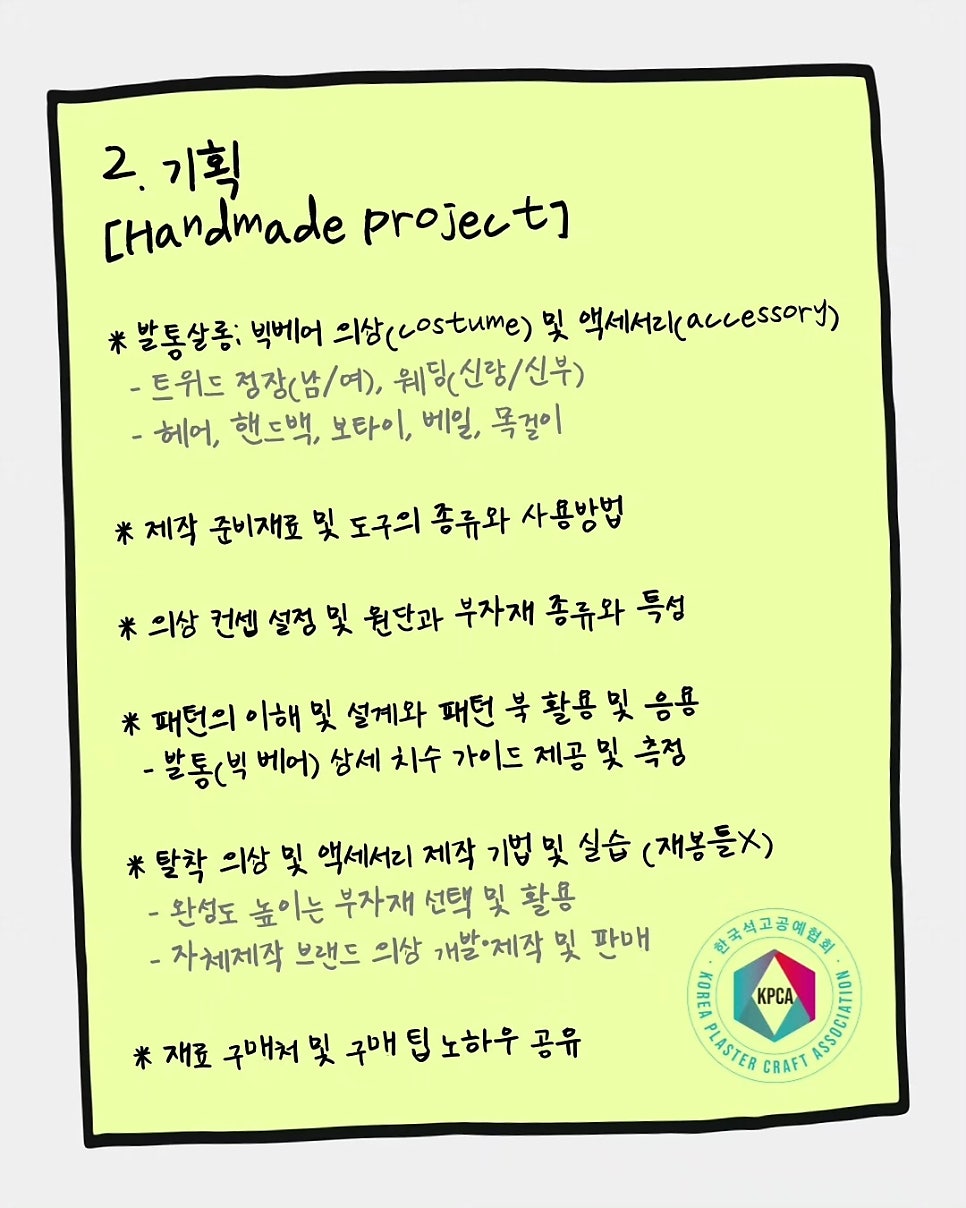 2. 기획
[Handmade project]
* 발통살롱; 빅베어 의상(costume) 및 액세서리(accessory)
- 트위드 정장(남/여), 웨딩(신랑/신부)
- 헤어, 핸드백, 보타이, 베일, 목걸이
* 제작 준비재료 및 도구의 종류와 사용방법
* 의상 컨셉 설정 및 원단과 부자재 종류와 특성
* 패턴의 이해 및 설계와 패턴 북 활용 및 응용
- 발통(빅 베어) 상세 치수 가이드 제공 및 측정
* 탈착 의상 및 액세서리 제작 기법 및 실습 (재봉틀X)
- 완성도 높이는 부자재 선택 및 활용
- 자체제작 브랜드 의상 개발•제작 및 판매
* 재료 구매처 및 구매 팁 노하우 공유
· 한국석고공예협회 ·
KPCA
KOREA PLASTER CRAFT ASSOCIATION